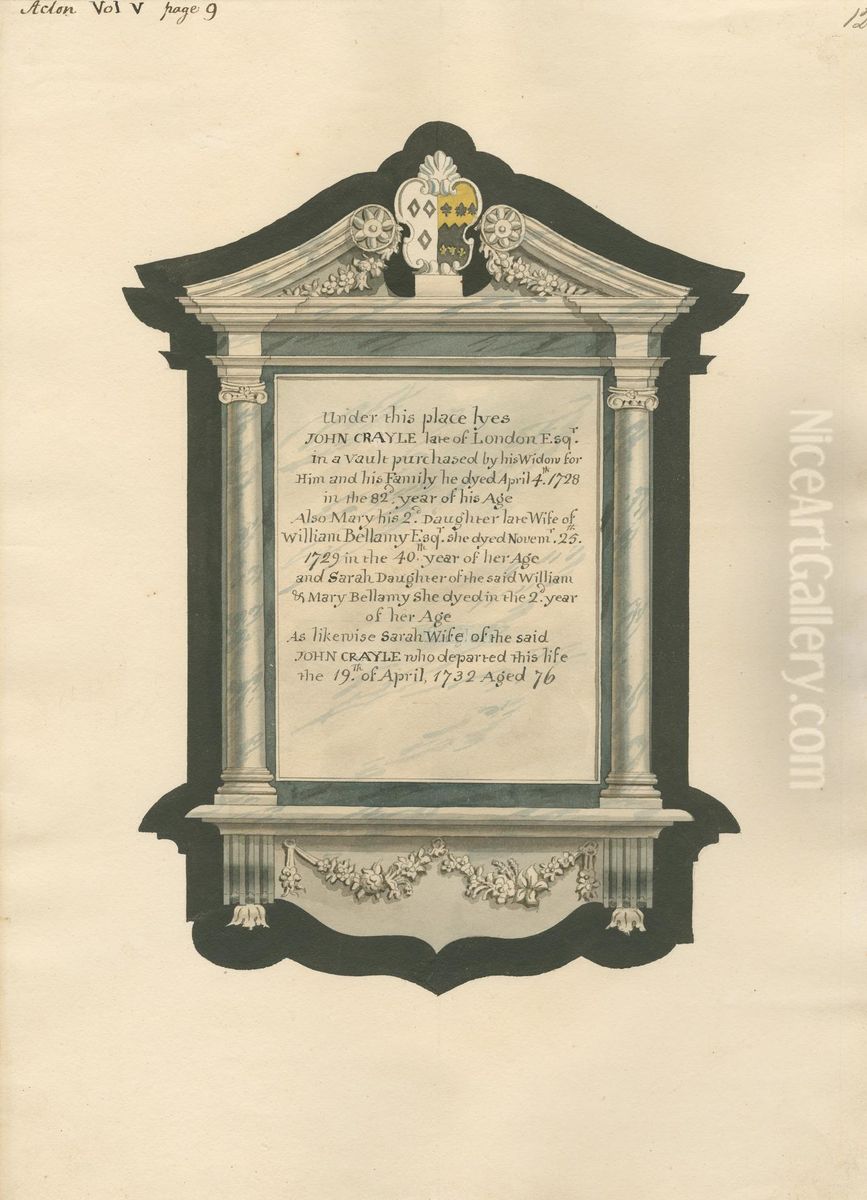 Acton Vol V page 9
12
Under this place lyes
JOHN CRAYLE late of London Esqr.
in a Vault purchased by his Widow for
Him and his Family he dyed April 4th. 1728
in the 82d. year of his Age
Also Mary his 2d. Daughter late Wife of
William Bellamy Esqr. she dyed Novemr. 25th.
1729 in the 40th. year of her Age
and Sarah Daughter of the said William
& Mary Bellamy She dyed in the 2d. year
of her Age
As likewise Sarah Wife of the said
JOHN CRAYLE who departed this life
the 19th. of April, 1732 Aged 76
NiceArtGallery.com